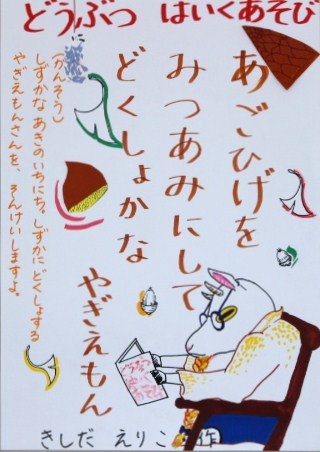 どうぶつ はいくあそび
あごひげを
みつあみにして
どくしょかな
やぎえもん
(かんそう)
しずかな あきのいちにち。しずかに どくしょする
やぎえもんさんを、そんけいしますよ。
きしだ えりこ 作